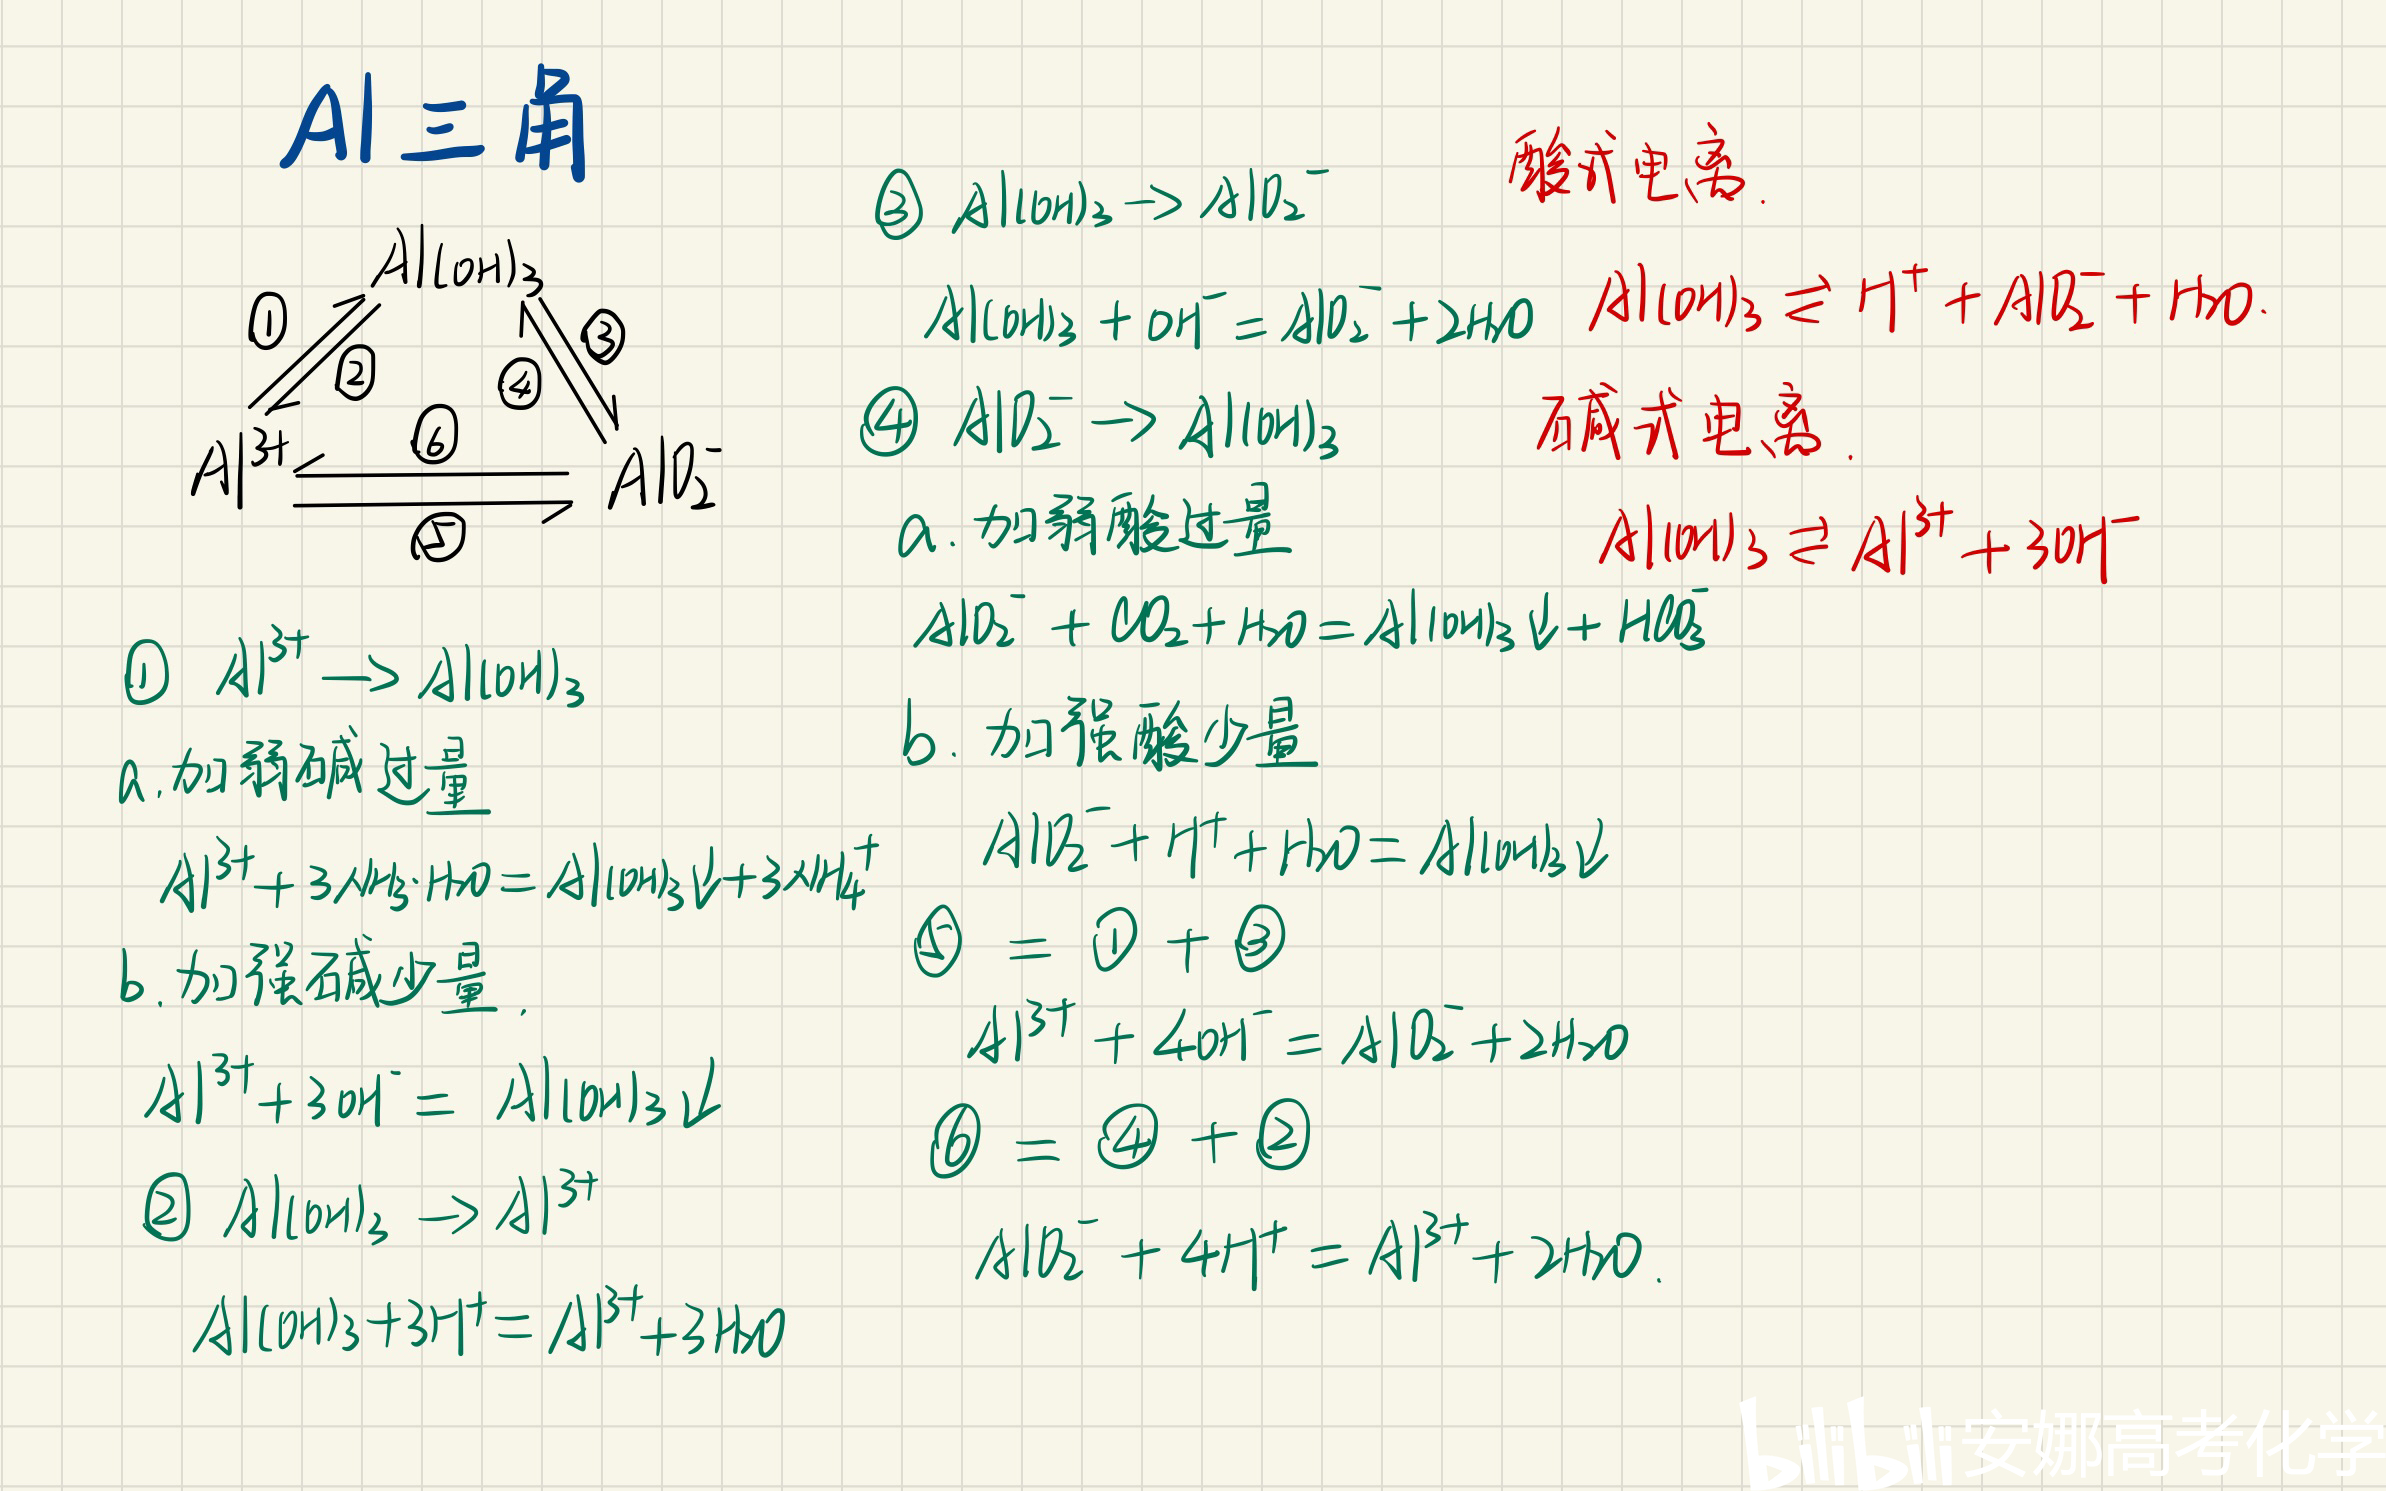 Al三角
Al(OH)₃
① ② ③ ④
⑥
Al³⁺ AlO₂⁻
⑤
① Al³⁺ → Al(OH)₃
a. 加弱碱过量
Al³⁺ + 3NH₃·H₂O = Al(OH)₃↓ + 3NH₄⁺
b. 加强碱少量.
Al³⁺ + 3OH⁻ = Al(OH)₃↓
② Al(OH)₃ → Al³⁺
Al(OH)₃ + 3H⁺ = Al³⁺ + 3H₂O
③ Al(OH)₃ → AlO₂⁻
Al(OH)₃ + OH⁻ = AlO₂⁻ + 2H₂O
④ AlO₂⁻ → Al(OH)₃
a. 加弱酸过量
AlO₂⁻ + CO₂ + H₂O = Al(OH)₃↓ + HCO₃⁻
b. 加强酸少量
AlO₂⁻ + H⁺ + H₂O = Al(OH)₃↓
⑤ = ① + ③
Al³⁺ + 4OH⁻ = AlO₂⁻ + 2H₂O
⑥ = ④ + ②
AlO₂⁻ + 4H⁺ = Al³⁺ + 2H₂O.
酸式电离.
Al(OH)₃ ⇌ H⁺ + AlO₂⁻ + H₂O.
碱式电离.
Al(OH)₃ ⇌ Al³⁺ + 3OH⁻
bilibili 安娜高考化学